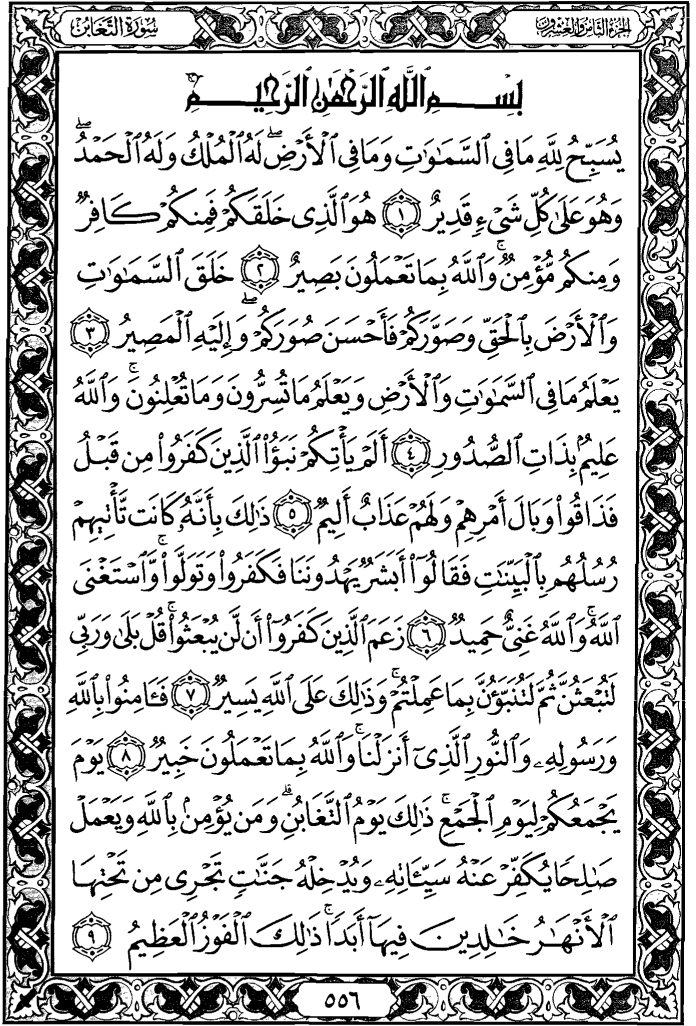 الجزء الثامن والعشرون
سورة التغابن
بِسْمِ اللَّهِ الرَّحْمَٰنِ الرَّحِيمِ
يُسَبِّحُ لِلَّهِ مَا فِى السَّمَٰوَٰتِ وَمَا فِى الْأَرْضِ ۖ لَهُ الْمُلْكُ وَلَهُ الْحَمْدُ ۖ
وَهُوَ عَلَىٰ كُلِّ شَىْءٍ قَدِيرٌ ١ هُوَ الَّذِى خَلَقَكُمْ فَمِنكُمْ كَافِرٌ
وَمِنكُم مُّؤْمِنٌ ۚ وَاللَّهُ بِمَا تَعْمَلُونَ بَصِيرٌ ٢ خَلَقَ السَّمَٰوَٰتِ
وَالْأَرْضَ بِالْحَقِّ وَصَوَّرَكُمْ فَأَحْسَنَ صُوَرَكُمْ ۖ وَإِلَيْهِ الْمَصِيرُ ٣
يَعْلَمُ مَا فِى السَّمَٰوَٰتِ وَالْأَرْضِ وَيَعْلَمُ مَا تُسِرُّونَ وَمَا تُعْلِنُونَ ۚ وَاللَّهُ
عَلِيمٌۢ بِذَاتِ الصُّدُورِ ٤ أَلَمْ يَأْتِكُمْ نَبَؤُا۟ الَّذِينَ كَفَرُوا۟ مِن قَبْلُ
فَذَاقُوا۟ وَبَالَ أَمْرِهِمْ وَلَهُمْ عَذَابٌ أَلِيمٌ ٥ ذَٰلِكَ بِأَنَّهُۥ كَانَت تَّأْتِيهِمْ
رُسُلُهُم بِالْبَيِّنَٰتِ فَقَالُوٓا۟ أَبَشَرٌ يَهْدُونَنَا فَكَفَرُوا۟ وَتَوَلَّوا۟ ۚ وَّاسْتَغْنَى
اللَّهُ ۚ وَاللَّهُ غَنِىٌّ حَمِيدٌ ٦ زَعَمَ الَّذِينَ كَفَرُوٓا۟ أَن لَّن يُبْعَثُوا۟ ۚ قُلْ بَلَىٰ وَرَبِّى
لَتُبْعَثُنَّ ثُمَّ لَتُنَبَّؤُنَّ بِمَا عَمِلْتُمْ ۚ وَذَٰلِكَ عَلَى اللَّهِ يَسِيرٌ ٧ فَـَٔامِنُوا۟ بِاللَّهِ
وَرَسُولِهِۦ وَالنُّورِ الَّذِىٓ أَنزَلْنَا ۚ وَاللَّهُ بِمَا تَعْمَلُونَ خَبِيرٌ ٨ يَوْمَ
يَجْمَعُكُمْ لِيَوْمِ الْجَمْعِ ۖ ذَٰلِكَ يَوْمُ التَّغَابُنِ ۗ وَمَن يُؤْمِنۢ بِاللَّهِ وَيَعْمَلْ
صَٰلِحًا يُكَفِّرْ عَنْهُ سَيِّـَٔاتِهِۦ وَيُدْخِلْهُ جَنَّٰتٍ تَجْرِى مِن تَحْتِهَا
الْأَنْهَٰرُ خَٰلِدِينَ فِيهَآ أَبَدًا ۚ ذَٰلِكَ الْفَوْزُ الْعَظِيمُ ٩
٥٥٦